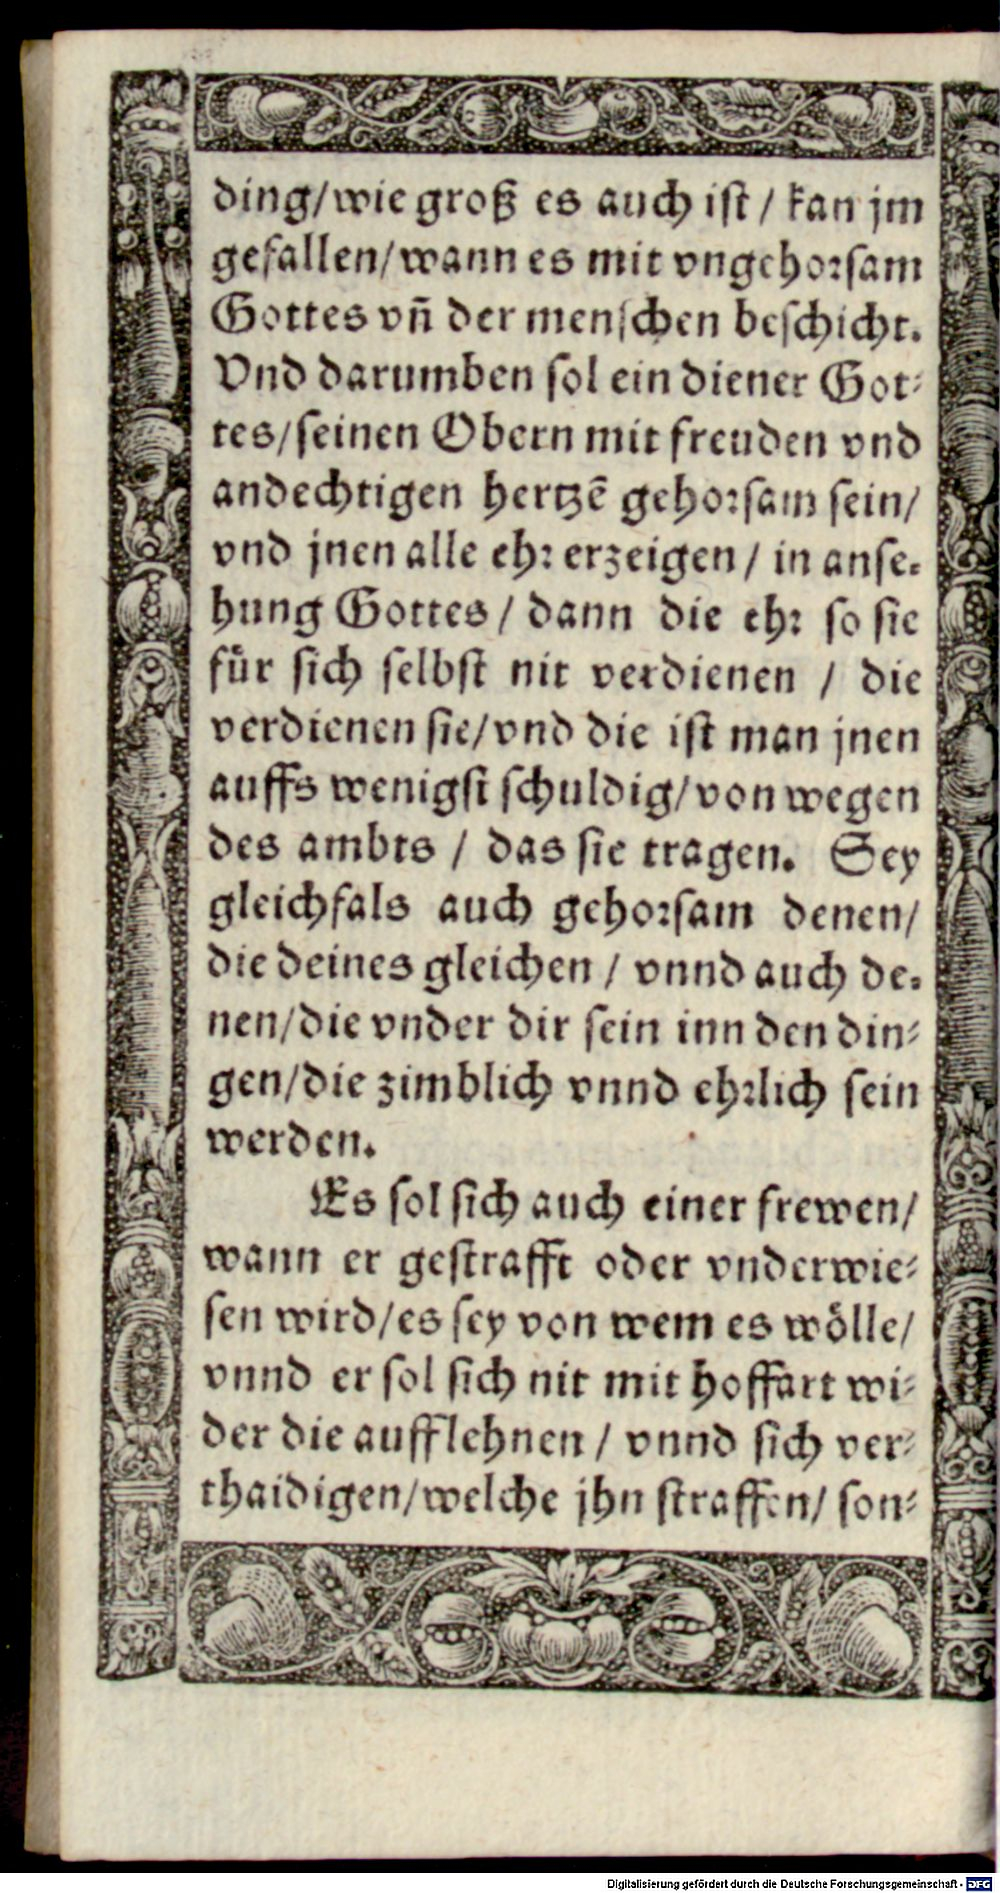 ding/wie groß es auch ist / kan jm
gefallen/wann es mit vngehorsam
Gottes vn̄ der menschen beschicht.
Vnd darumben sol ein diener Got-
tes/seinen Obern mit freuden vnd
andechtigen hertzē gehorsam sein/
vnd jnen alle ehr erzeigen / in anse-
hung Gottes / dann die ehr so sie
für sich selbst nit verdienen / die
verdienen sie/vnd die ist man jnen
auffs wenigst schuldig/von wegen
des ambts / das sie tragen. Sey
gleichfals auch gehorsam denen/
die deines gleichen / vnnd auch de-
nen/die vnder dir sein inn den din-
gen/die zimblich vnnd ehrlich sein
werden.
Es sol sich auch einer frewen/
wann er gestrafft oder vnderwie-
sen wird/es sey von wem es wölle/
vnnd er sol sich nit mit hoffart wi-
der die aufflehnen / vnnd sich ver-
thaidigen/welche jhn straffen/ son-
Digitalisierung gefördert durch die Deutsche Forschungsgemeinschaft - DFG